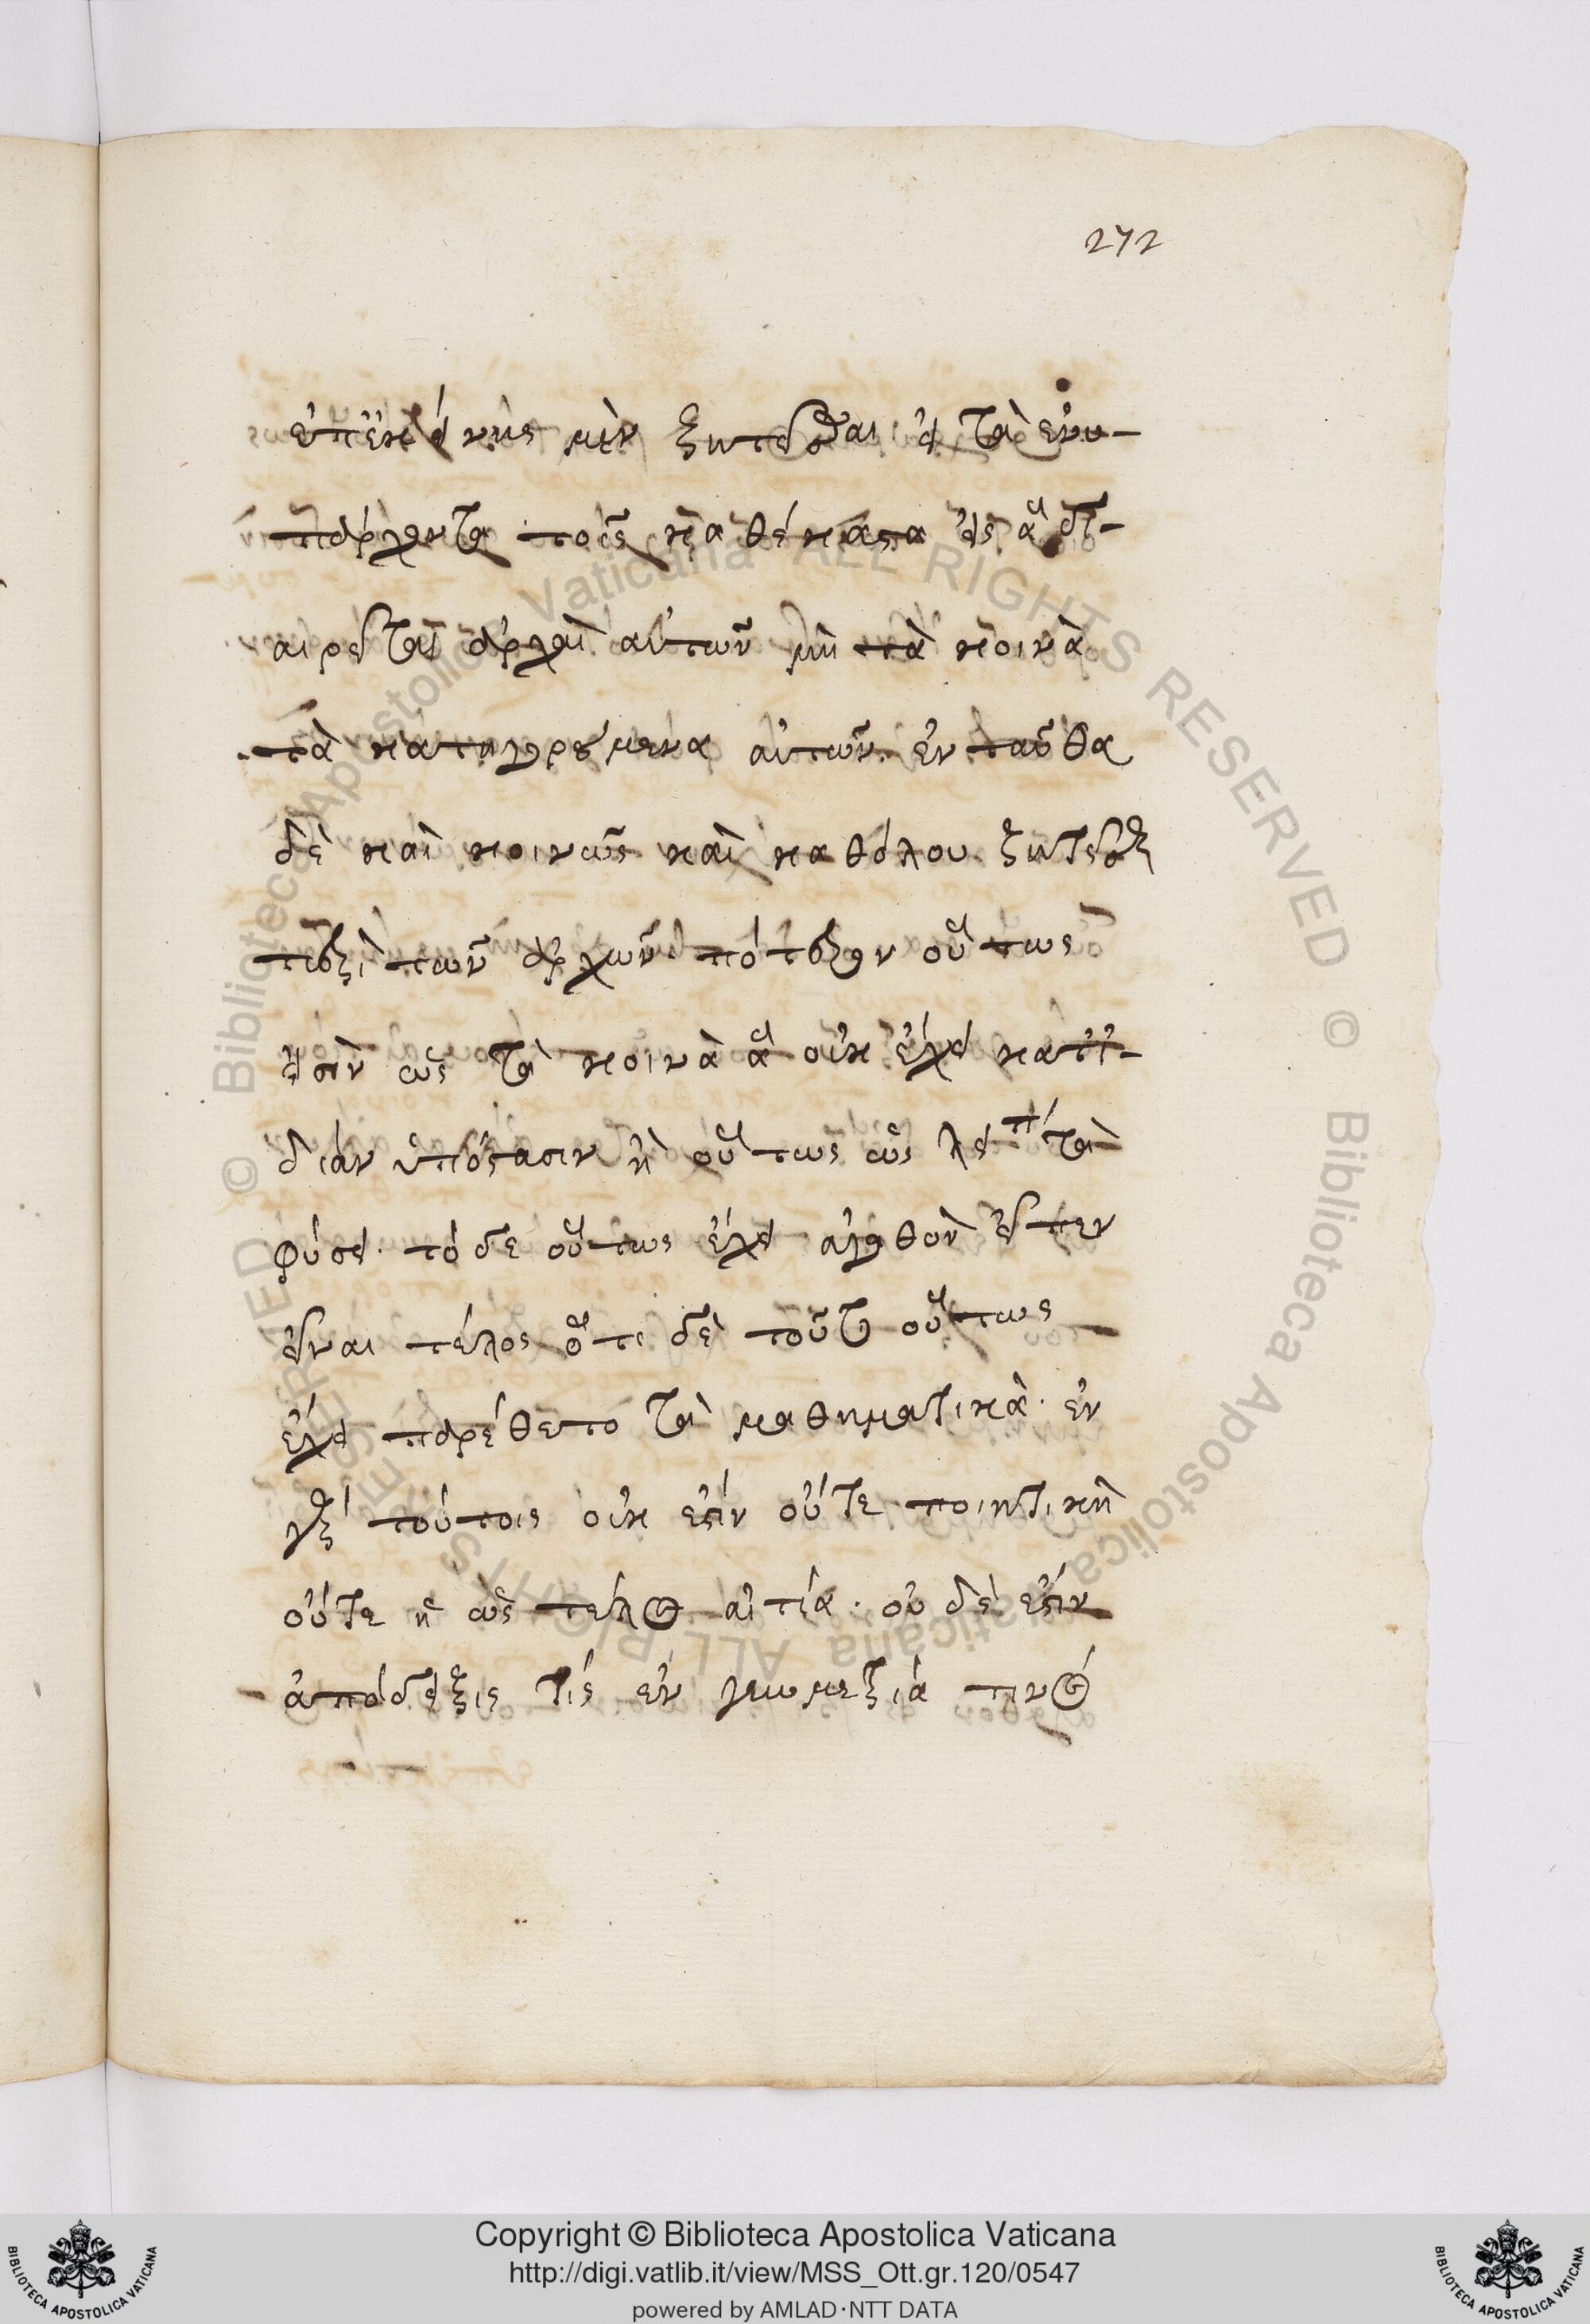 272
ἐπ' ἐκείνης μὲν ζητεῖσθαι εἰ τὰ ἐνυ-
πάρχοντα τοῖς καθέκαστα εἰς ἃ δι-
αιρεῖται ἀρχαὶ αὐτῶν μὴ τὰ κοινὰ
τὰ κατηγορούμενα αὐτῶν. ἐνταῦθα
δὲ καὶ κοινῶς καὶ καθόλου ζητεῖσθαι
περὶ τῶν ἀρχῶν πότερον οὕτως
εἰσὶν ὡς τὰ κοινὰ ἃ οὐκ ἔχει κατ' ἰ-
δίαν ὑπόστασιν ἢ οὕτως ὡς
φύσει. τόδε οὕτως ἔχει ἀγαθὸν εἶπεν
εἶναι τέλος ὅτι δὲ τοῦτο οὕτως
ἔχει παρέθετο τὰ μαθηματικὰ. ἐν
γὰρ τούτοις οὐκ ἔστιν οὔτε ποιητικὴ
οὔτε ἡ ὡς τέλος αἰτία. οὐδέ ἐστιν
ἀπόδειξις τίς ἐν γεωμετρία τινός
Copyright © Biblioteca Apostolica Vaticana
http://digi.vatlib.it/view/MSS_Ott.gr.120/0547
powered by AMLAD·NTT DATA
BIBLIOTECA APOSTOLICA VATICANA
BIBLIOTECA APOSTOLICA VATICANA
© Biblioteca Apostolica Vaticana ALL RIGHTS RESERVED
© Biblioteca Apostolica Vaticana ALL RIGHTS RESERVED